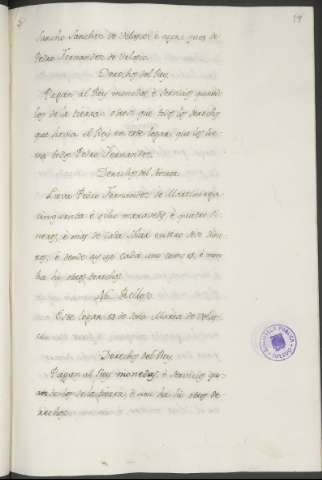 Sancho Sanchez de Velasco è agora ques de
Pedro Fernandez de Velasco.
Derechos del Rey
Pagan al Rey monedas, è servicios quando
los de la tierra, è otros que todos los derechos
que havia el Rey en este logar, que los lie-
va todos Pedro Fernandez.
Derechos del Señor
Lieva Pedro Fernandez de Martiniega
cinquanta è ocho maravedis, è quatro di-
neros, è mas de cada Solar siete dine-
ros, è demas que cada uno è non
ha hi otros derechos.
Este logar es de Doña Maria de Velas-
co
Derechos del Rey
Pagan al Rey monedas, è servicios qu-
ando los de la tierra, è non ha hi otros de-
rechos.
BIBLIOTECA PUBLICA
TOLEDO